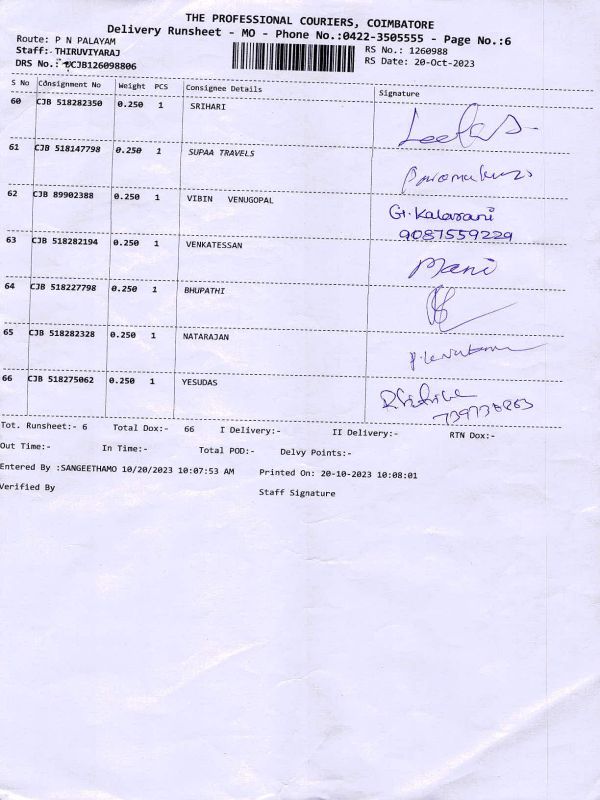 THE PROFESSIONAL COURIERS, COIMBATORE
Delivery Runsheet - MO - Phone No.:0422-3505555 - Page No.:6
Route: P N PALAYAM
RS No.: 1260988
Staff: THIRUVIYARAJ
RS Date: 20-Oct-2023
DRS No.: UCJB126098806
S No Consignment No Weight PCS Consignee Details Signature
60 CJB 518282350 0.250 1 SRIHARI
61 CJB 518147798 0.250 1 SUPAA TRAVELS
62 CJB 89902388 0.250 1 VIBIN VENUGOPAL G. Kalarani
9087559229
63 CJB 518282194 0.250 1 VENKATESSAN Mani
64 CJB 518227798 0.250 1 BHUPATHI
65 CJB 518282328 0.250 1 NATARAJAN
66 CJB 518275062 0.250 1 YESUDAS
Tot. Runsheet:- 6 Total Dox:- 66 I Delivery:- II Delivery:- RTN Dox:-
Out Time:- In Time:- Total POD:- Delvy Points:-
Entered By :SANGEETHAMO 10/20/2023 10:07:53 AM Printed On: 20-10-2023 10:08:01
Verified By Staff Signature